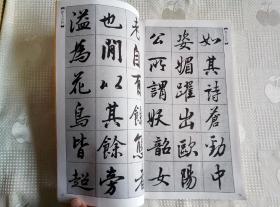 如其詩蒼勁中
姿媚躍出歐陽
公所謂妖韶女
老自有餘態者
也閒以其餘旁
溢為花鳥皆超